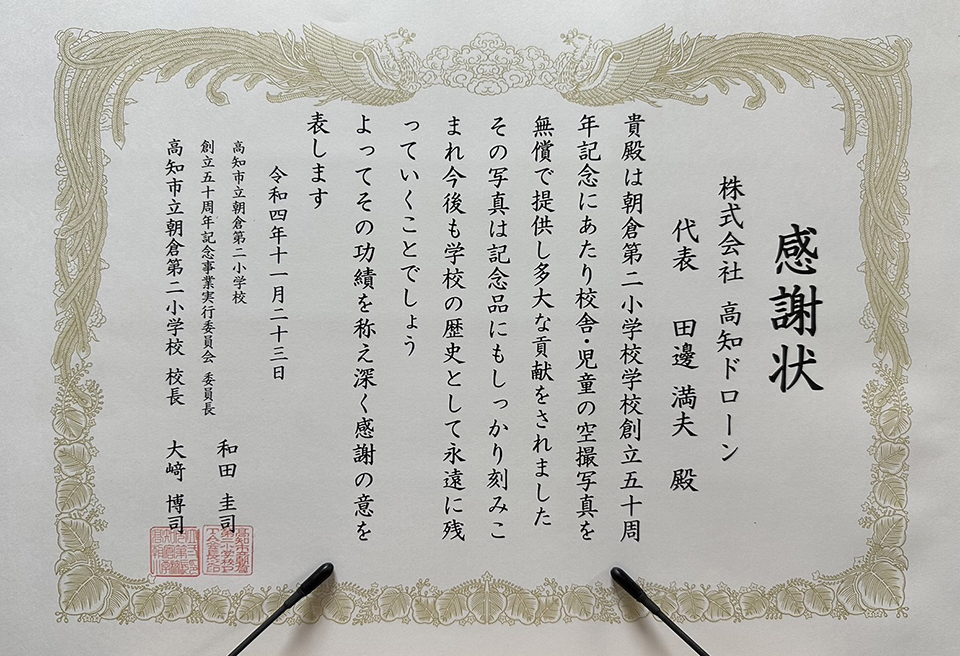 感謝状
株式会社 高知ドローン
代表 田邊 満夫 殿
貴殿は朝倉第二小学校学校創立五十周
年記念にあたり校舎・児童の空撮写真を
無償で提供し多大な貢献をされました
その写真は記念品にもしっかり刻みこ
まれ今後も学校の歴史として永遠に残
っていくことでしょう
よってその功績を称え深く感謝の意を
表します
令和四年十一月二十三日
高知市立朝倉第二小学校
創立五十周年記念事業実行委員会 委員長 和田 圭司
高知市立朝倉第二小学校 校長 大﨑 博司